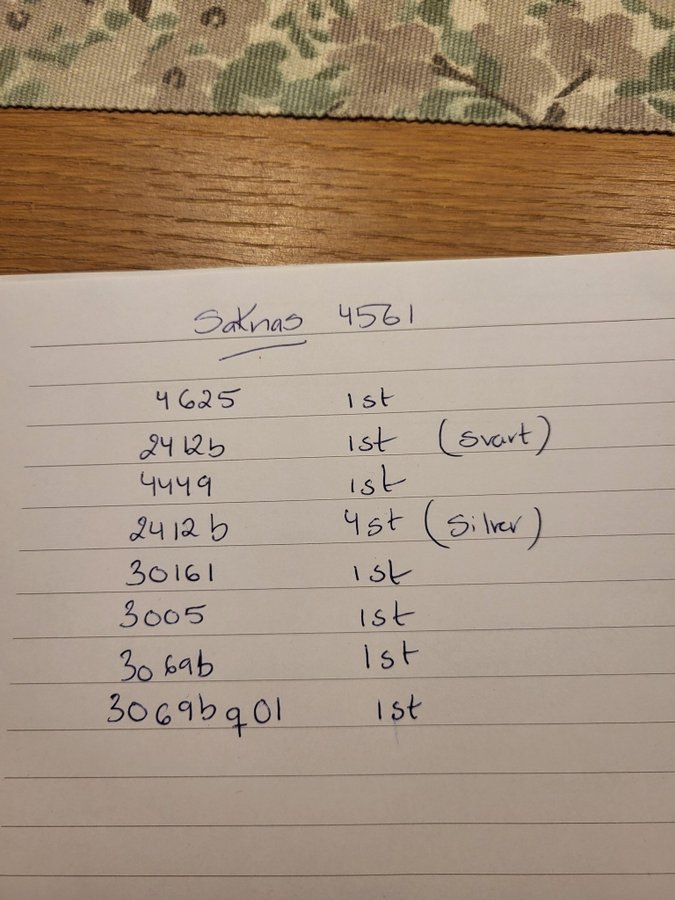 Saknas 4561
4625 1st
2412b 1st (svart)
4449 1st
2412b 4st (Silver)
30161 1st
3005 1st
3069b 1st
3069bq01 1st